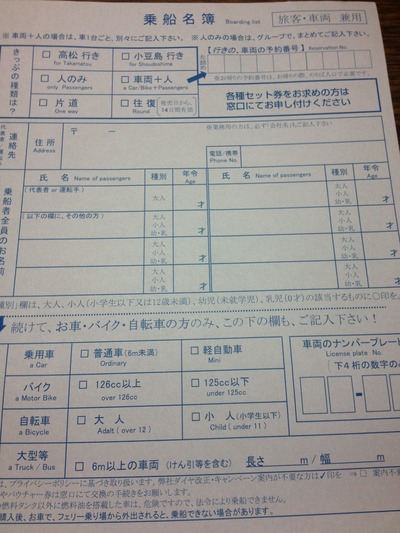 乗船名簿 Boarding list 旅客・車両 兼用
※ 車両+人の場合は、車1台ごと、別々にご記入下さい。 ※人のみの場合は、グループで、まとめてご記入下さい。
きっぷの種類は?
□ 高松 行き for Takamatsu □ 小豆島 行き for Shoudoshima
□ 人のみ only Passengers □ 車両+人 a Car/Bike+Passengers
□ 片道 One way □ 往復 Round 発売日から、14日間有効
【行きの、車両の予約番号】 Reservation No.
左詰め
各種セット券をお求めの方は
窓口にてお申し付けください
連絡先
住所 Address 〒 ー
電話/携帯 Phone No.
乗船者全員のお名前
氏 名 Name of passengers 種別 年令 Age 氏 名 Name of passengers 種別 年令 Age
(代表者 or 運転手) 大人 才 大人 小人 幼・乳 才
(以下の欄に、その他の方) 大人 小人 幼・乳 才 大人 小人 幼・乳 才
大人 小人 幼・乳 才 大人 小人 幼・乳 才
大人 小人 幼・乳 才 大人 小人 幼・乳 才
種別」欄は、大人、小人(小学生以下又は12歳未満)、幼児(未就学児)、乳児(0才)の該当するものに○印を、
続けて、お車・バイク・自転車の方のみ、この下の欄も、ご記入下さい!
乗用車 a Car □ 普通車(6m未満) Ordinary □ 軽自動車 Mini
バイク a Motor Bike □ 126cc以上 over 126cc □ 125cc以下 under 125cc
自転車 a Bicycle □ 大 人 Adalt ( over 12 ) □ 小 人 (小学生以下) Child ( under 11 )
大型等 a Truck / Bus □ 6m以上の車両 (けん引等を含む) 長さ m / 幅 m
車両のナンバープレート
License plate No.
「下4桁の数字のみ
は、プライバシーポリシーに基づき取り扱います。弊社ダイヤ改正・キャンペーン案内が不要な方は✓印を ⇒ □ 案内不
やバウチャー券は窓口にて交換の手続きをお願いします。
燃料タンク以外に燃料油を搭載した車は、危険ですので、法令により乗船できません。
購入後、お車で、フェリー乗り場から外出されると、乗船できない場合があります。